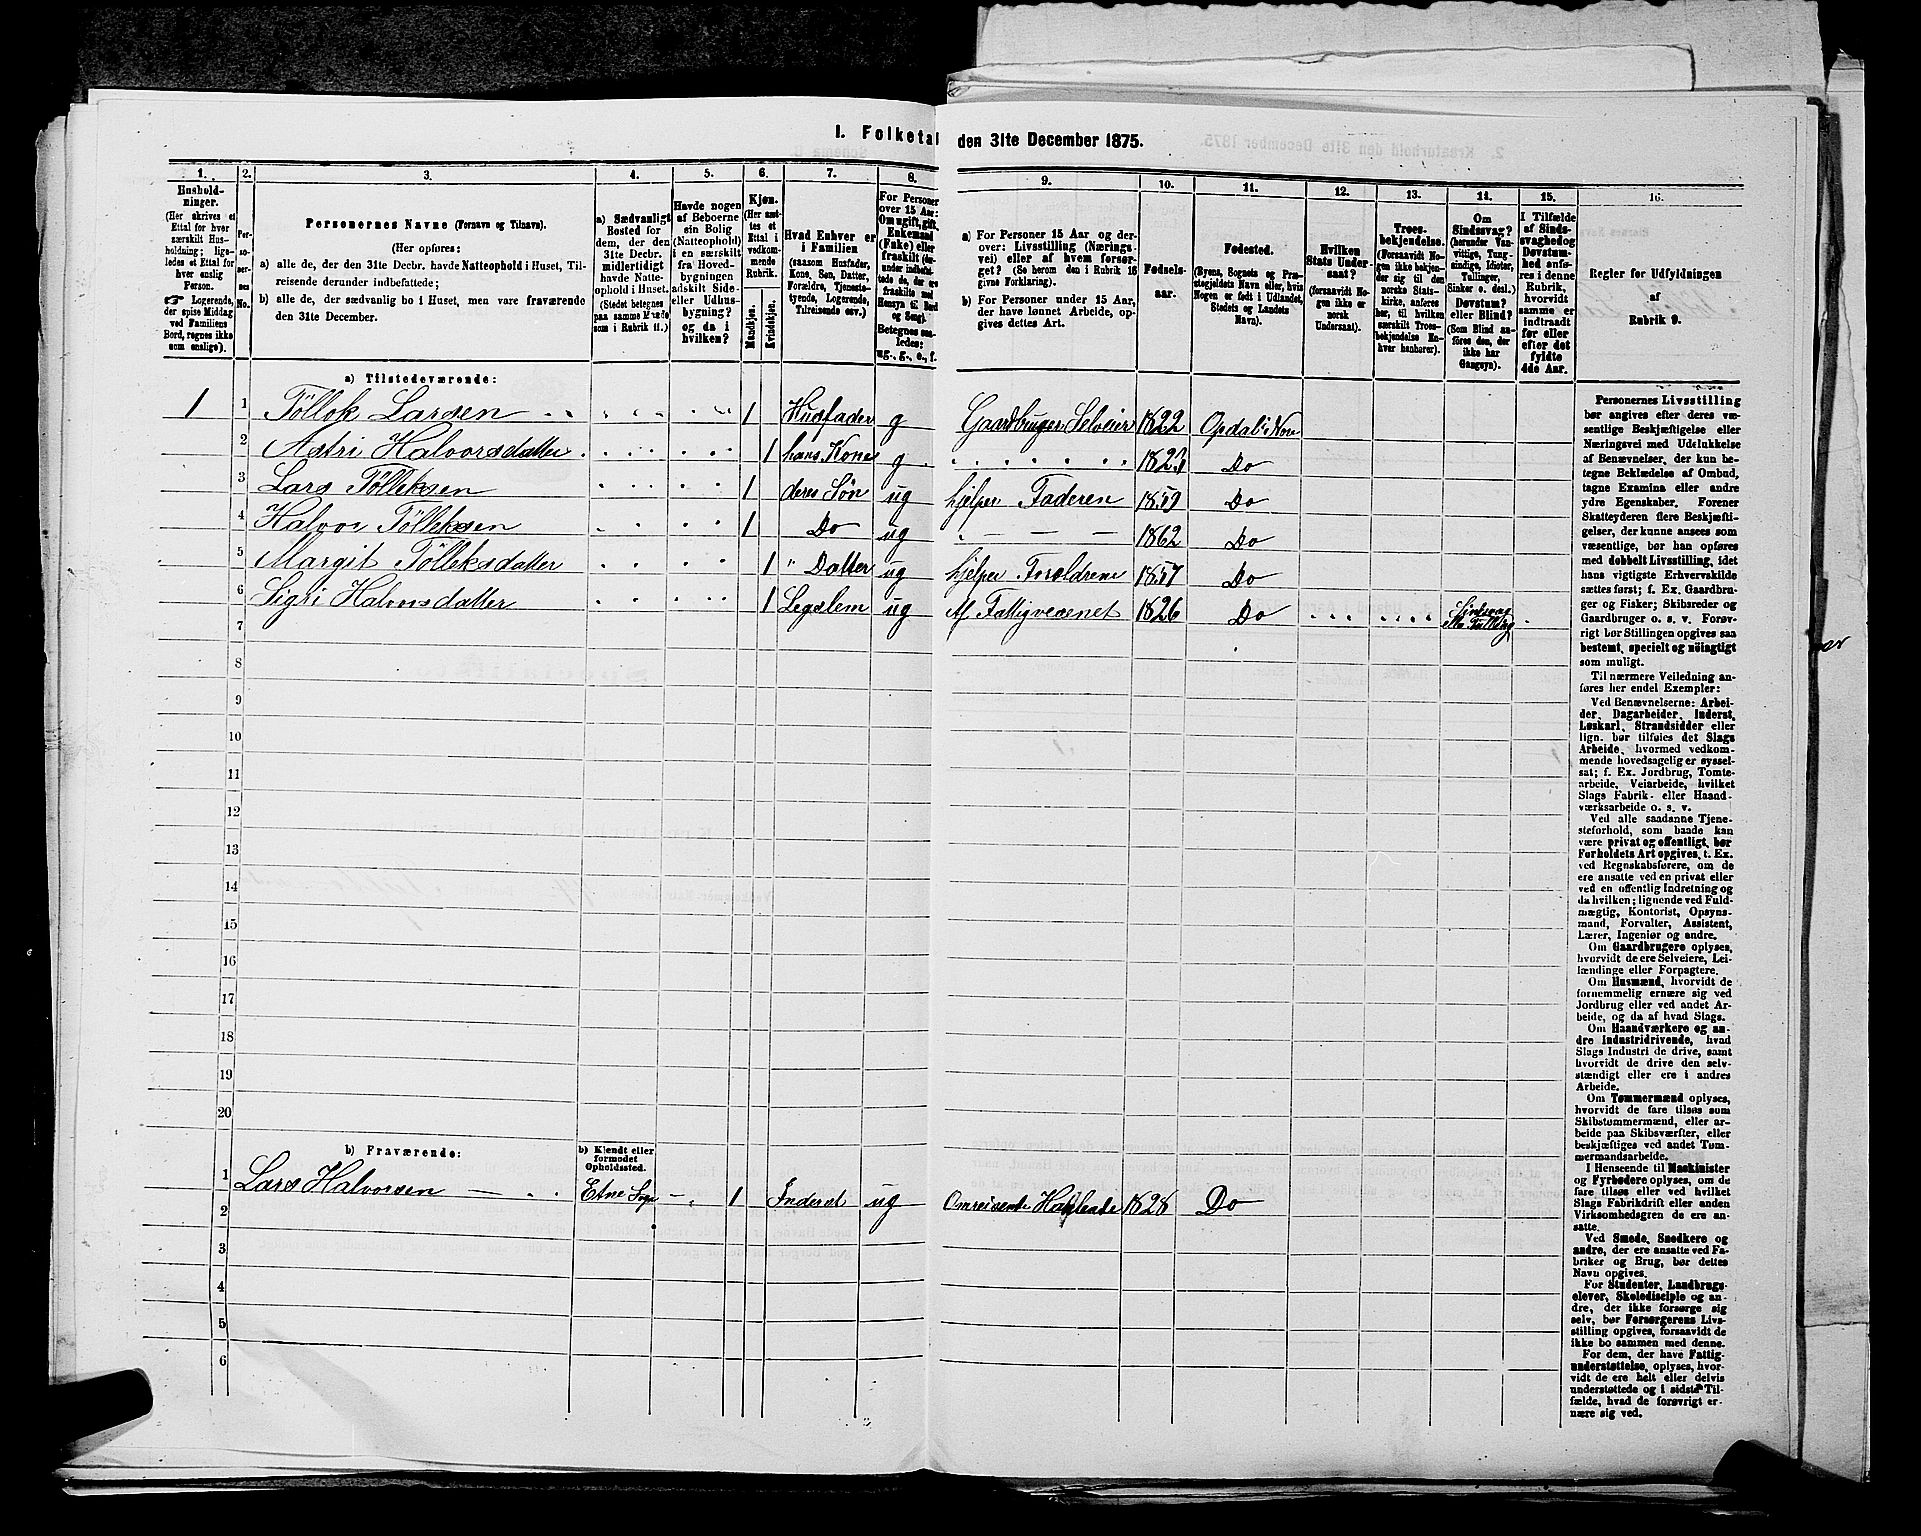 1. Folketal den 31te December 1875.
1. 2. 3. 4. 5. 6. 7. 8. 9. 10. 11. 12. 13. 14. 15. 16.
Hushold-
ninger.
(Her skrives et
Ettal for hver
særskilt Hus-
holdning; lige-
ledes et Ettal for
hver enslig
Person.
☞ Logerende,
der spise Middag
ved Familiens
Bord, regnes ikke
som enslige).
Per-
so-
ner-
nes
No.
Personernes Navne (Fornavn og Tilnavn).
(Her opføres:
a) alle de, der den 31te Decbr. havde Natteophold i Huset, Til-
reisende derunder indbefattede;
b) alle de, der sædvanlig bo i Huset, men vare fraværende
den 31te December.
a) Sædvanligt
Bosted for
dem, der den
31te Decbr.
midlertidigt
havde Natte-
ophold i Huset.
(Stedet betegnes
paa samme Maade
som i Rubrik 11.)
Havde nogen
af Beboerne
sin Bolig
(Natteophold)
i en særskilt
fra Hoved-
bygningen
adskilt Side-
eller Udhus-
bygning?
og da i
hvilken?
Kjøn.
(Her sæt-
tes et
Ettal i
vedkom-
mende
Rubrik.
Mandkjøn.
Kvindekjøn.
Hvad Enhver er
i Familien
(saasom Husfader,
Kone, Søn, Datter,
Forældre, Tjeneste-
tyende, Logerende,
Tilreisende osv.)
For Personer
over 15 Aar:
Om ugift, gift,
Enkemand
(Enke) eller
fraskilt
Betegnes saa-
ledes:
ug., g., e., f.
a) For Personer 15 Aar og der-
over: Livsstilling (Nærings-
vei) eller af hvem forsør-
get? (Se herom den i Rubrik 16
givne Forklaring).
b) For Personer under 15 Aar,
der have lønnet Arbeide, op-
gives dettes Art.
Fødsels-
aar.
Fødested.
(Byens, Sognets og Præ-
stegjeldets Navn eller, hvis
Nogen er født i Udlandet,
Stedets og Landets
Navn).
Hvilken
Stats Under-
saat?
(forsaavidt No-
gen ikke er
norsk
Undersaat).
Troes-
bekjendelse.
(Forsaavidt No-
gen ikke bekjen-
der sig til den
norske Stats-
kirke, anføres
her, til hvilken
særskilt Troes-
bekjendelse En-
hver henhører).
Om
Sindssvag?
(herunder Van-
vittige, Tung-
sindige, Idioter,
Tullinger,
Sinker o. desl.)
Døvstum?
eller Blind?
(Som Blind an-
føres den, der
ikke har
Gangsyn).
I Tilfælde
af Sinds-
svaghed og
Døvstum-
hed anfø-
res i denne
Rubrik,
hvorvidt
samme er
indtraadt
før eller
efter det
fyldte
4de Aar.
Regler for Udfyldningen
af
Rubrik 9.
a) Tilstedeværende:
1 1 Töllek Larsen 1 Husfader g Gaardbruger Selveier 1822 Opdal i Num
2 Astri Halvorsdatter 1 hans Kone g 1823 Do
3 Lars Tölleksen 1 deres Søn ug hjelper Faderen 1859 Do
4 Halvor Tölleksen 1 Do ug — — — 1862 Do
5 Margit Tölleksdatter 1 " Datter ug hjelper Forældrene 1857 Do
6 Sigri Halvorsdatter 1 Legslem ug Af Fattigvesenet 1826 Do Sindsvag
7
8
9
10
11
12
13
14
15
16
17
18
19
20
b) Fraværende:
b) Kjendt eller
formodet
Opholdssted.
1 Lars Halvorsen — Etne Sogn — 1 Inderst ug Omreisende 1828 Do
2
3
4
5
6
Personernes Livsstilling
bør angives efter deres væ-
sentlige Beskjæftigelse eller
Næringsvei med Udelukkelse
af Benævnelser, der kun be-
tegne Beklædelse af Ombud,
tagne Examina eller andre
ydre Egenskaber. Forener
Skatteyderen flere Beskjæfti-
gelser, der kunne ansees som
væsentlige, bør han opføres
med dobbelt Livsstilling, idet
hans vigtigste Erhvervskilde
sættes først; f. Ex. Gaardbru-
ger og Fisker; Skibsreder og
Gaardbruger o. s. v. Forøv-
rigt bør Stillingen opgives saa
bestemt, specielt og nöiagtigt
som muligt.
Til nærmere Veiledning an-
føres her endel Exempler:
Ved Benævnelserne: Arbei-
der, Dagarbeider, Inderst,
Løskarl, Strandsidder eller
lign. bør tilføies det Slags
Arbeide, hvormed vedkom-
mende hovedsagelig er syssel-
sat; f. Ex. Jordbrug, Tomte-
arbeide, Veiarbeide, hvilket
Slags Fabrik- eller Haand-
værksarbeide o. s. v.
Ved alle saadanne Tjene-
steforhold, som baade kan
være privat og offentligt, bør
Forholdets Art opgives, t. Ex.
ved Regnskabsførere, om de
ere ansatte ved en privat eller
ved en offentlig Indretning og
da hvilken; lignende ved Fuld-
mægtig, Kontorist, Opsyns-
mand, Forvalter, Assistent,
Lærer, Ingeniør og andre.
Om Gaardbrugere oplyses,
hvorvidt de ere Selveiere, Lei-
lændinge eller Forpagtere.
Om Husmænd, hvorvidt de
fornemmelig ernære sig ved
Jordbrug eller ved andet Ar-
beide, og da af hvad Slags.
Om Haandværkere og an-
dre industridrivende, hvad
Slags Industri de drive, samt
hvorvidt de drive den selv-
stændigt eller ere i andres
Arbeide.
Om Tømmermænd oplyses,
hvorvidt de fare tilsøs som
Skibstømmermænd, eller ar-
beide paa Skibsværfter, eller
beskjæftiges ved andet Tøm-
mermandsarbeide.
I Henseende til Maskinister
og Fyrbødere oplyses, om de
fare tilsøs eller ved hvilket
Slags Fabrikdrift eller anden
Virksomhedsgren de ere an-
satte.
Ved Smede, Snedkere og
andre, der ere ansatte ved Fa-
briker og Brug, bør dettes
Navn opgives.
For Studenter, Landbrugs-
elever, Skoledisciple og an-
dre, der ikke forsørge sig
selv, bør Forsørgerens Livs-
stilling opgives, forsaavidt de
ikke bo sammen med denne.
For dem, der have Fattig-
understøttelse, oplyses, hvor-
vidt de ere helt eller delvis
understøttede og i sidste Til-
fælde, hvad de forøvrigt er-
nære sig ved.